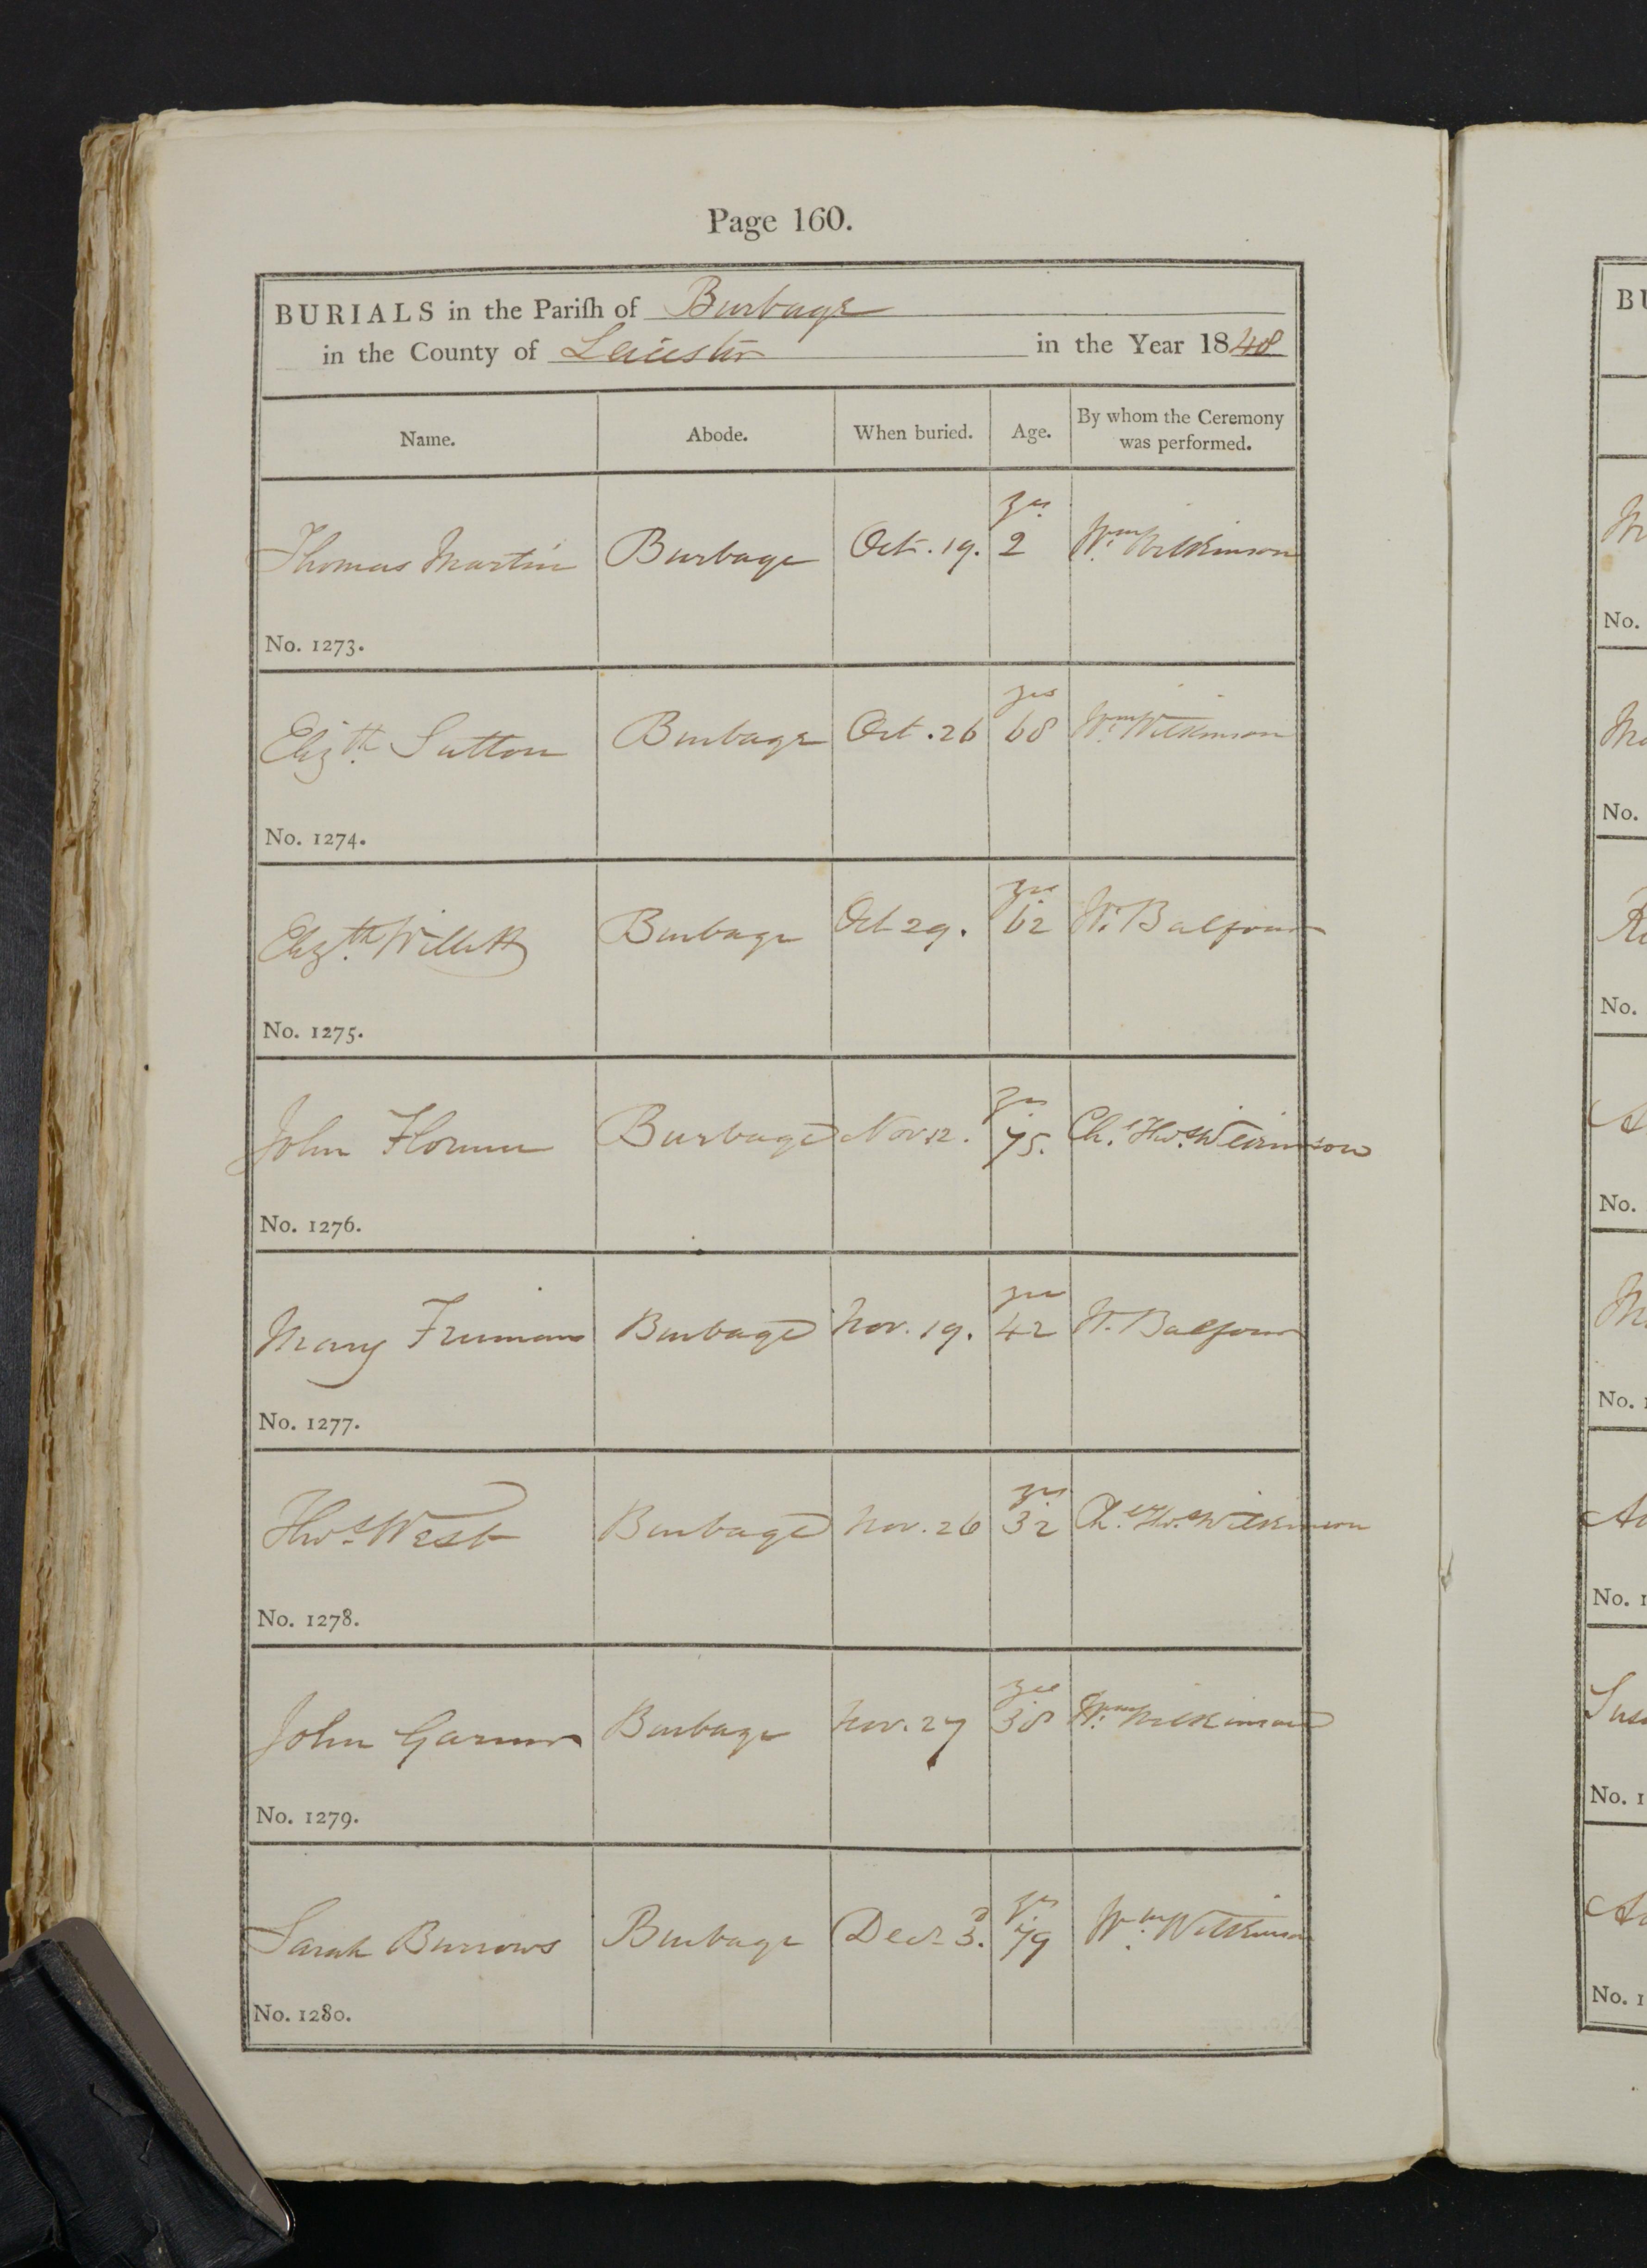 Page 160.
BURIALS in the Pariſh of Burbage
in the County of Leicester in the Year 1848
Name. Abode. When buried. Age. By whom the Ceremony was performed.
yrs
Thomas Martin Burbage Oct. 19. 2 Wm. Wilkinson
No. 1273.
yrs
Elizth. Sutton Burbage Oct. 26 68 Wm. Wilkinson
No. 1274.
yrs
Elizth. Willett Burbage Oct 29. 62 W. Balfour
No. 1275.
yrs
John Burbage Nov 12. 75. Chs. Thos. Wilkinson
No. 1276.
yrs
Mary Freeman Burbage Nov. 19. 42 W. Balfour
No. 1277.
yrs
Thos. West Burbage Nov. 26 32 Chs. Thos. Wilkinson
No. 1278.
yrs
John Garner Burbage Nov. 27 38 Wm. Wilkinson
No. 1279.
yrs
Sarah Burrows Burbage Decr 3d. 79 Wm. Wilkinson
No. 1280.
BU
No.
No.
No.
No.
No. 1
No. 1
No. 1
No. 1